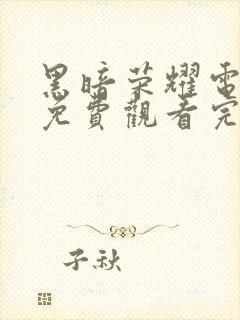 黑暗荣耀電
免費觀看完
子秋